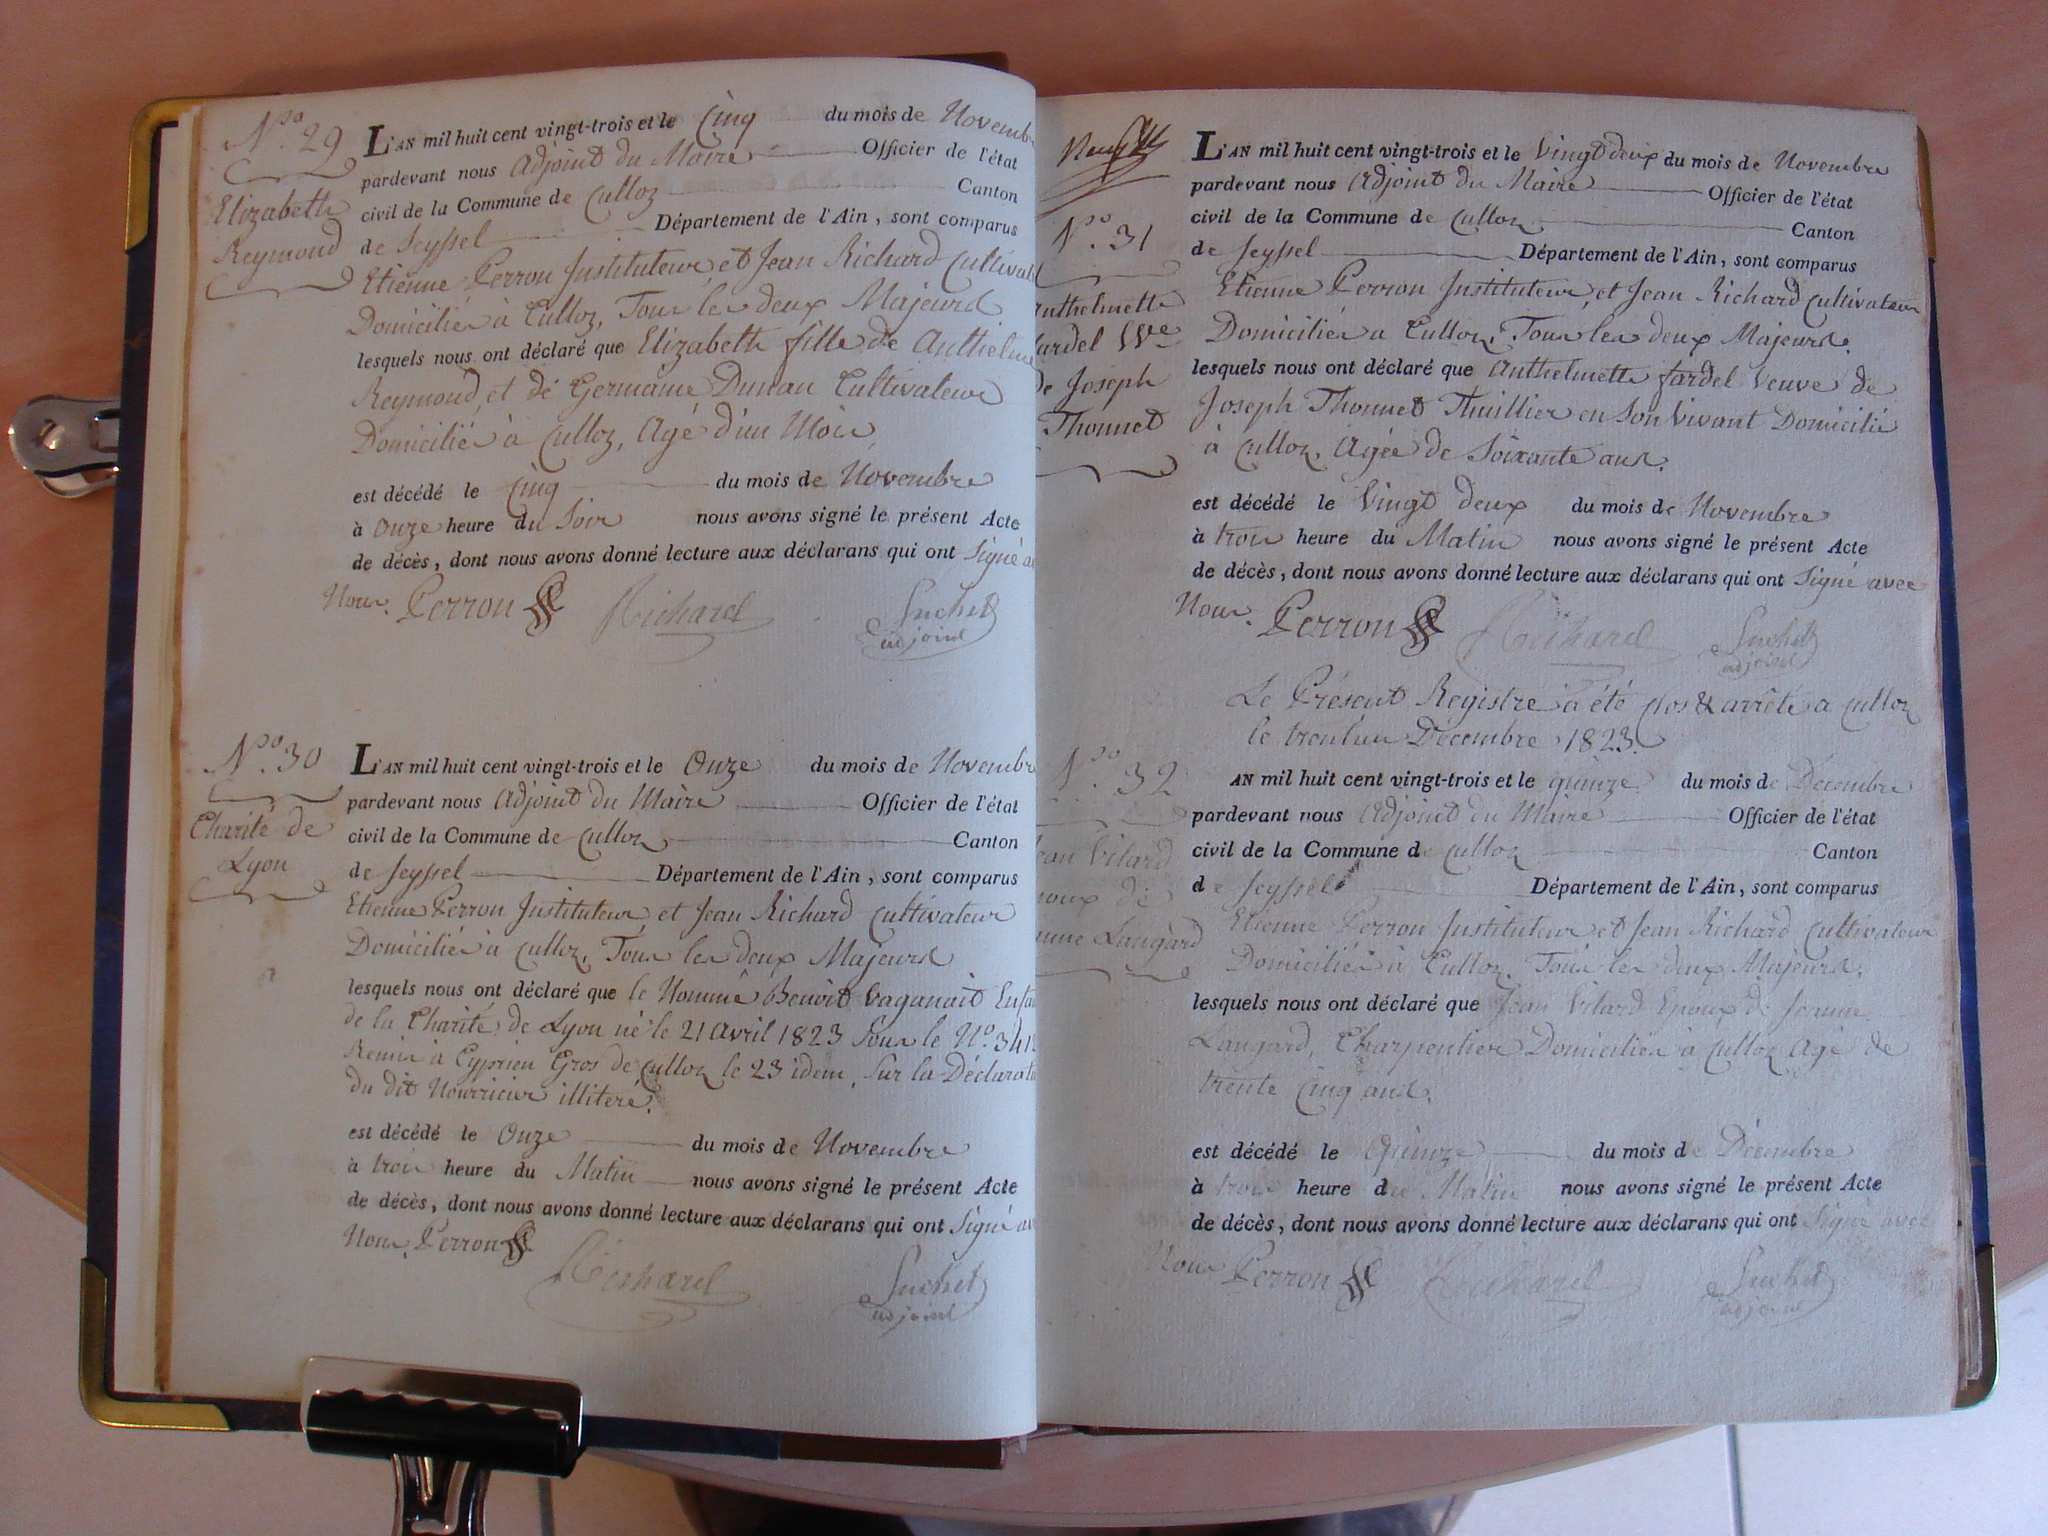 N.ro 29
Elizabeth
Reymond
L'AN mil huit cent vingt-trois et le Cinq du mois de Novembre
pardevant nous Adjoint du Maire Officier de l'état
civil de la Commune de Culloz Canton
de Seyssel Département de l'Ain, sont comparus
Etienne Perron Instituteur et Jean Richard Cultivat
Domiciliés à Culloz, Tous les deux Majeurs
lesquels nous ont déclaré que Elizabeth fille de Anthelme
Reymond, et de Germaine Dunan Cultivateur
Domicilié à Culloz, Agé d'un Mois,
est décédé le Cinq du mois de Novembre
à Onze heure du Soir nous avons signé le présent Acte
de décès, dont nous avons donné lecture aux déclarans qui ont Signé av
Nous. Perron Richard Suchet
adjoint
N.ro 30
Charité de
Lyon
L'AN mil huit cent vingt-trois et le Onze du mois de Novembre
pardevant nous Adjoint du Maire Officier de l'état
civil de la Commune de Culloz Canton
de Seyssel Département de l'Ain, sont comparus
Etienne Perron Instituteur et Jean Richard Cultivateur
Domiciliés à Culloz, Tous les deux Majeurs
lesquels nous ont déclaré que le Nommé Benoit Vaganait Enfa
de la Charité de Lyon né le 21 Avril 1823 Sous le N.o
Remis à Cyprien Gros de Culloz le 23 idem, Sur la Déclarat
du dit Nourricier illiteré.
est décédé le Onze du mois de Novembre
à trois heure du Matin nous avons signé le présent Acte
de décès, dont nous avons donné lecture aux déclarans qui ont Signé av
Nous. Perron
Richard Suchet
adjoint
N.ro 31
Anthelmette
fardel Ve
de Joseph
Thonnet
L'AN mil huit cent vingt-trois et le Vingt deux du mois de Novembre
pardevant nous Adjoint du Maire Officier de l'état
civil de la Commune de Culloz Canton
de Seyssel Département de l'Ain, sont comparus
Etienne Perron Instituteur, et Jean Richard Cultivateur
Domiciliés a Culloz, Tous les deux Majeurs.
lesquels nous ont déclaré que Anthelmette fardel Veuve de
Joseph Thonnet Thuillier en Son Vivant Domicilié
à Culloz, Agée de Soixante ans.
est décédé le Vingt deux du mois de Novembre
à trois heure du Matin nous avons signé le présent Acte
de décès, dont nous avons donné lecture aux déclarans qui ont Signé avec
Nous. Perron Richard Suchet
adjoint
Le Présent Registre a été clos & arrêté a Culloz
le trentun Décembre 1823.
N.ro 32
Jean Vilard
époux de
Jeanne Laugard
AN mil huit cent vingt-trois et le quinze du mois de Décembre
pardevant nous Adjoint du Maire Officier de l'état
civil de la Commune de Culloz Canton
de Seyssel Département de l'Ain, sont comparus
Etienne Perron Instituteur et Jean Richard Cultivateur
Domiciliés à Culloz, Tous les deux Majeurs.
lesquels nous ont déclaré que Jean Vilard Epoux de Jeanne
Laugard, Charpentier Domicilié à Culloz Agé de
trente Cinq ans.
est décédé le Quinze du mois de Décembre
à trois heure du Matin nous avons signé le présent Acte
de décès, dont nous avons donné lecture aux déclarans qui ont Signé avec
Nous Perron Richard Suchet
adjoint